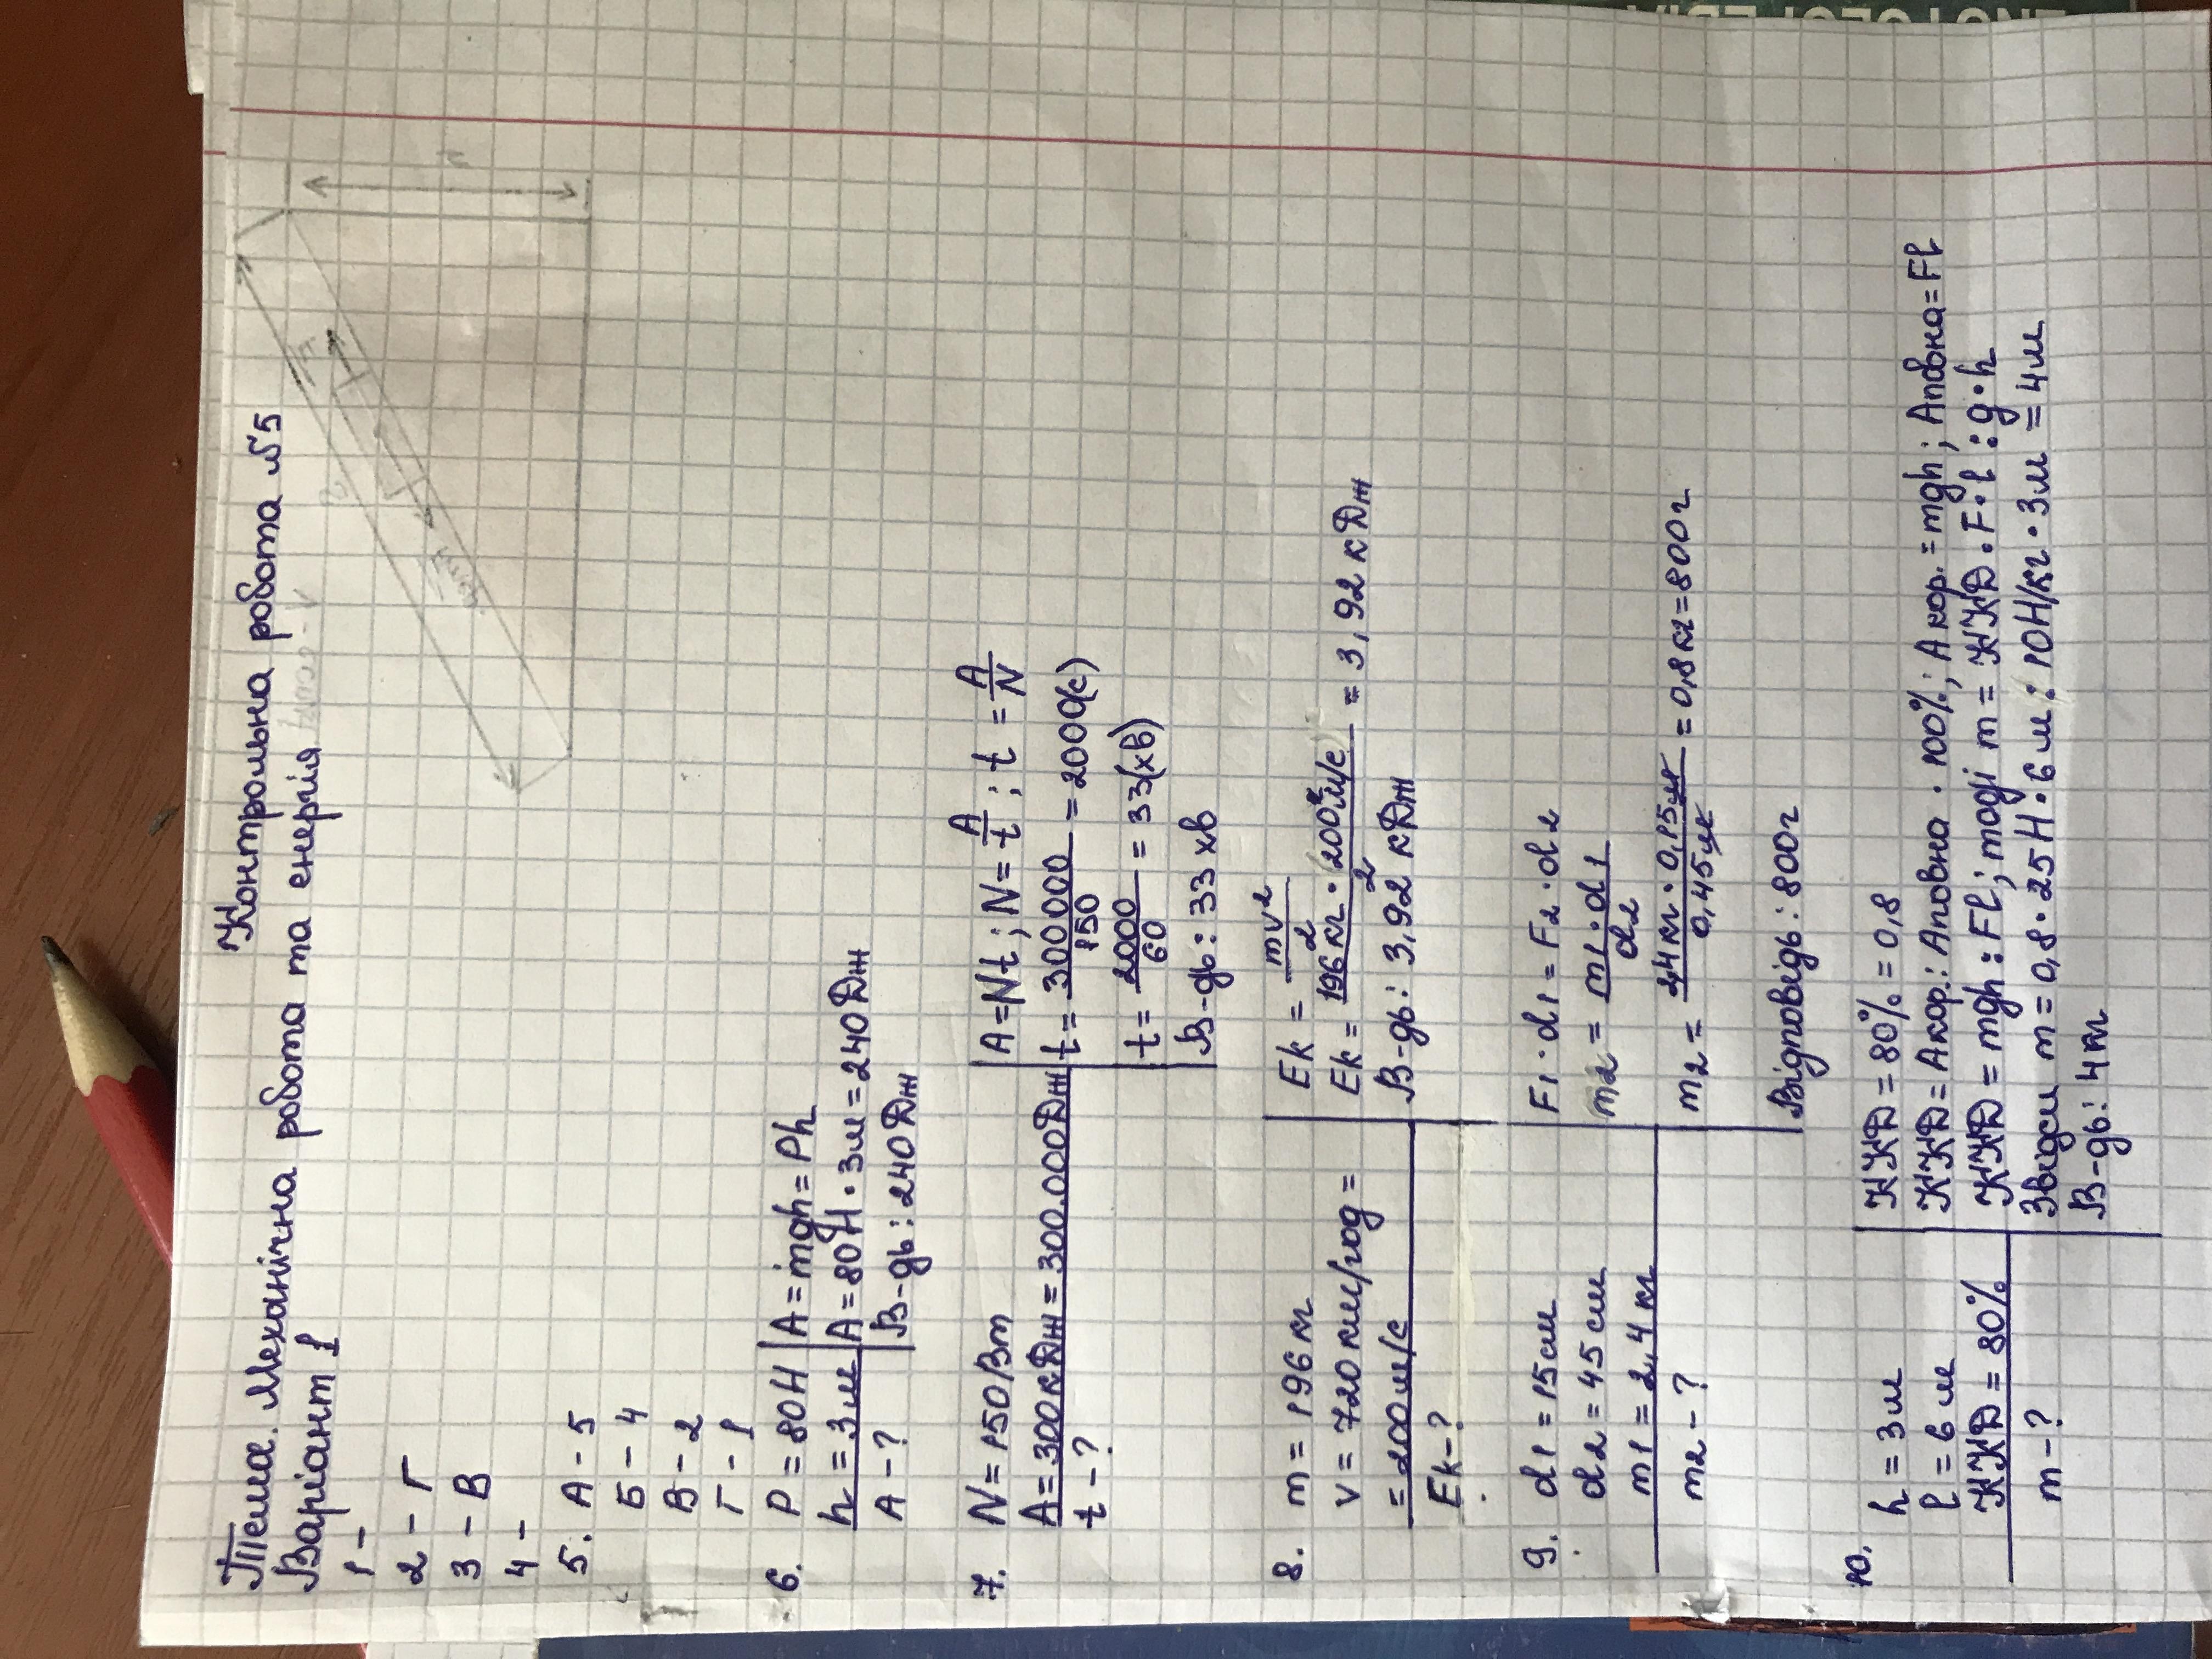 Контрольна робота №5
Тема. Механічна робота та енергія
Варіант 1
1 -
2 - Г
3 - В
4 -
5. А - 5
Б - 4
В - 2
Г - 1
6. P = 80Н
h = 3м
A - ?
A = mgh = Ph
A = 80Н · 3м = 240Дж
В-дь: 240Дж
7. N = 150Вт
A = 300кДж = 300.000Дж
t - ?
A = Nt; N = A/t; t = A/N
t = 300000/150 = 2000(с)
t = 2000/60 = 33(хв)
В-дь: 33хв
8. m = 196кг
v = 720 км/год =
= 200м/с
Ek - ?
Ek = mv²/2
Ek = 196кг · 200²м/с/2 = 3,92 кДж
В-дь: 3,92 кДж
9. d1 = 15см
d2 = 45 см
m1 = 2,4 кг
m2 - ?
F1 · d1 = F2 · d2
m2 = m1 · d1/d2
m2 = 2,4кг · 0,15м/0,45м = 0,8кг = 800г
Відповідь: 800г
10. h = 3м
l = 6 м
ККД = 80%
m - ?
ККД = 80% = 0,8
ККД = Aкор.: Aповна · 100%; Aкор. = mgh; Aповна = Fl
ККД = mgh : Fl; тоді m = ККД · F · l : g · h
Звідси m = 0,8 · 25Н · 6м : 10Н/кг · 3м = 4м
В-дь: 4кг
l
F
Fтер
h